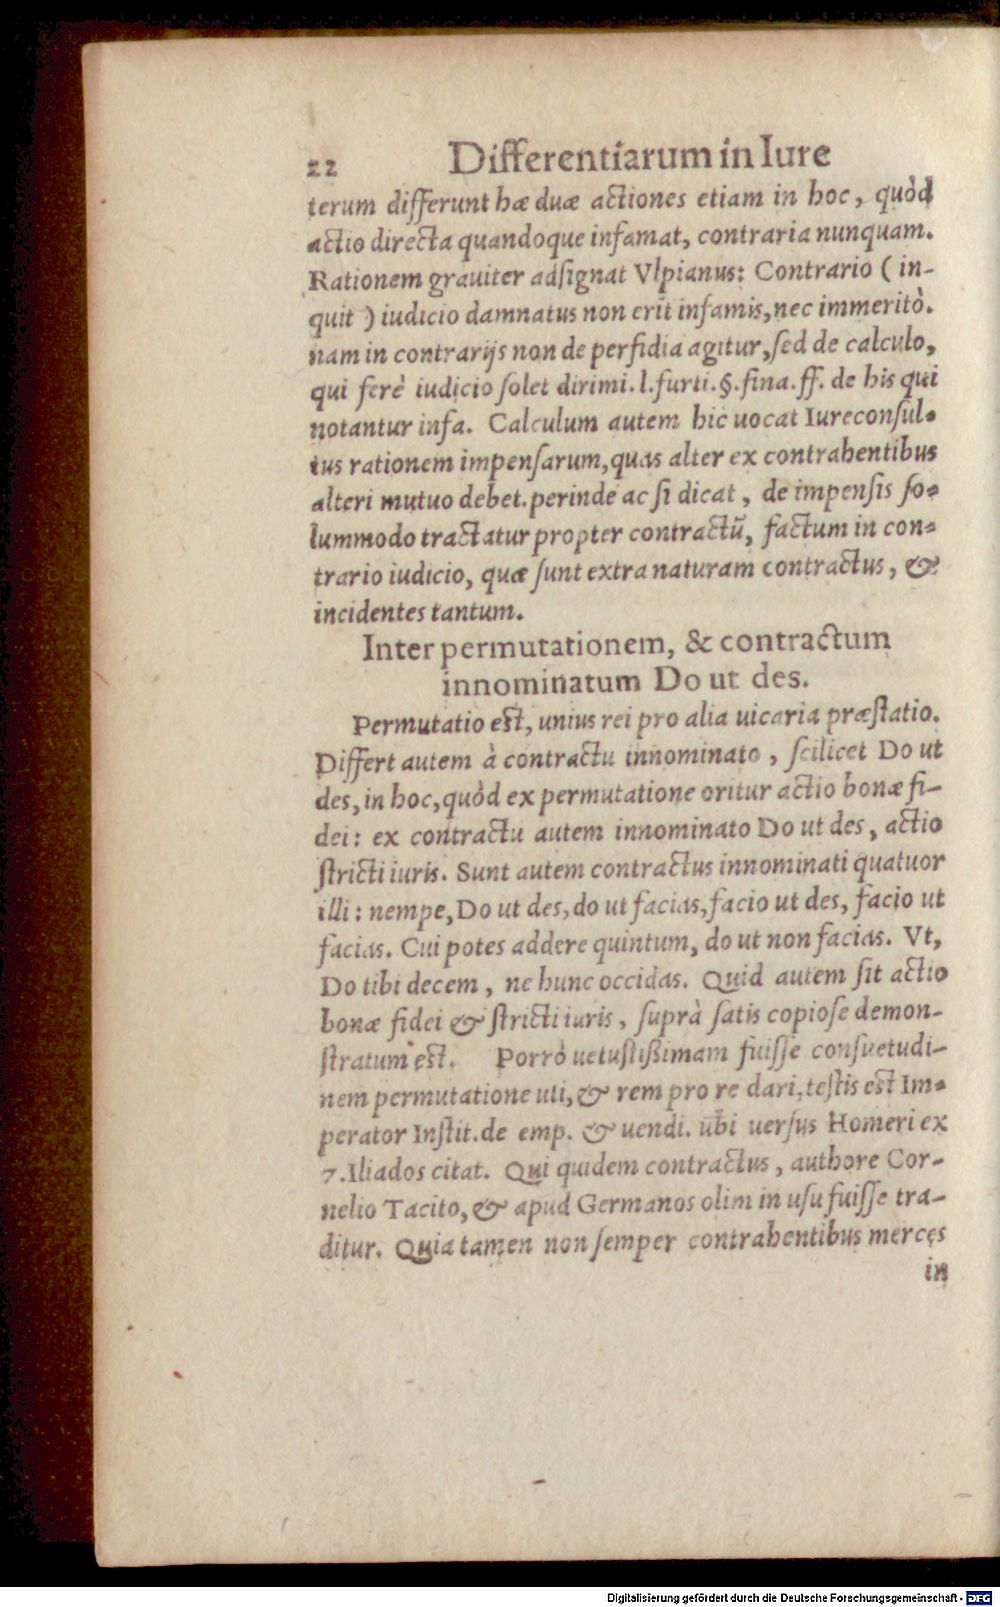 22 Differentiarum in Iure
terum differunt hæ duæ actiones etiam in hoc, quòd
actio directa quandoque infamat, contraria nunquam.
Rationem grauiter adsignat Vlpianus: Contrario ( in-
quit ) iudicio damnatus non erit infamis, nec immeritò.
nam in contrarijs non de perfidia agitur, sed de calculo,
qui ferè iudicio solet dirimi. l. furti. §. fina. ff. de his qui
notantur infa. Calculum autem hic uocat Iureconsul-
tus rationem impensarum, quas alter ex contrahentibus
alteri mutuo debet. perinde ac si dicat, de impensis so-
lummodo tractatur propter contractū, factum in con-
trario iudicio, quæ sunt extra naturam contractus, &
incidentes tantum.
Inter permutationem, & contractum
innominatum Do ut des.
Permutatio est, unius rei pro alia uicaria præstatio.
Differt autem à contractu innominato, scilicet Do ut
des, in hoc, quòd ex permutatione oritur actio bonæ fi-
dei: ex contractu autem innominato Do ut des, actio
stricti iuris. Sunt autem contractus innominati quatuor
illi: nempe, Do ut des, do ut facias, facio ut des, facio ut
facias. Cui potes addere quintum, do ut non facias. Vt,
Do tibi decem, ne hunc occidas. Quid autem sit actio
bonæ fidei & stricti iuris, suprà satis copiose demon-
stratum est. Porrò uetustißimam fuisse consuetudi-
nem permutatione uti, & rem pro re dari, testis est Im-
perator Instit. de emp. & uendi. ubi uersus Homeri ex
7. Iliados citat. Qui quidem contractus, authore Cor-
nelio Tacito, & apud Germanos olim in usu fuisse tra-
ditur. Quia tamen non semper contrahentibus merces
in
Digitalisierung gefördert durch die Deutsche Forschungsgemeinschaft - DFG